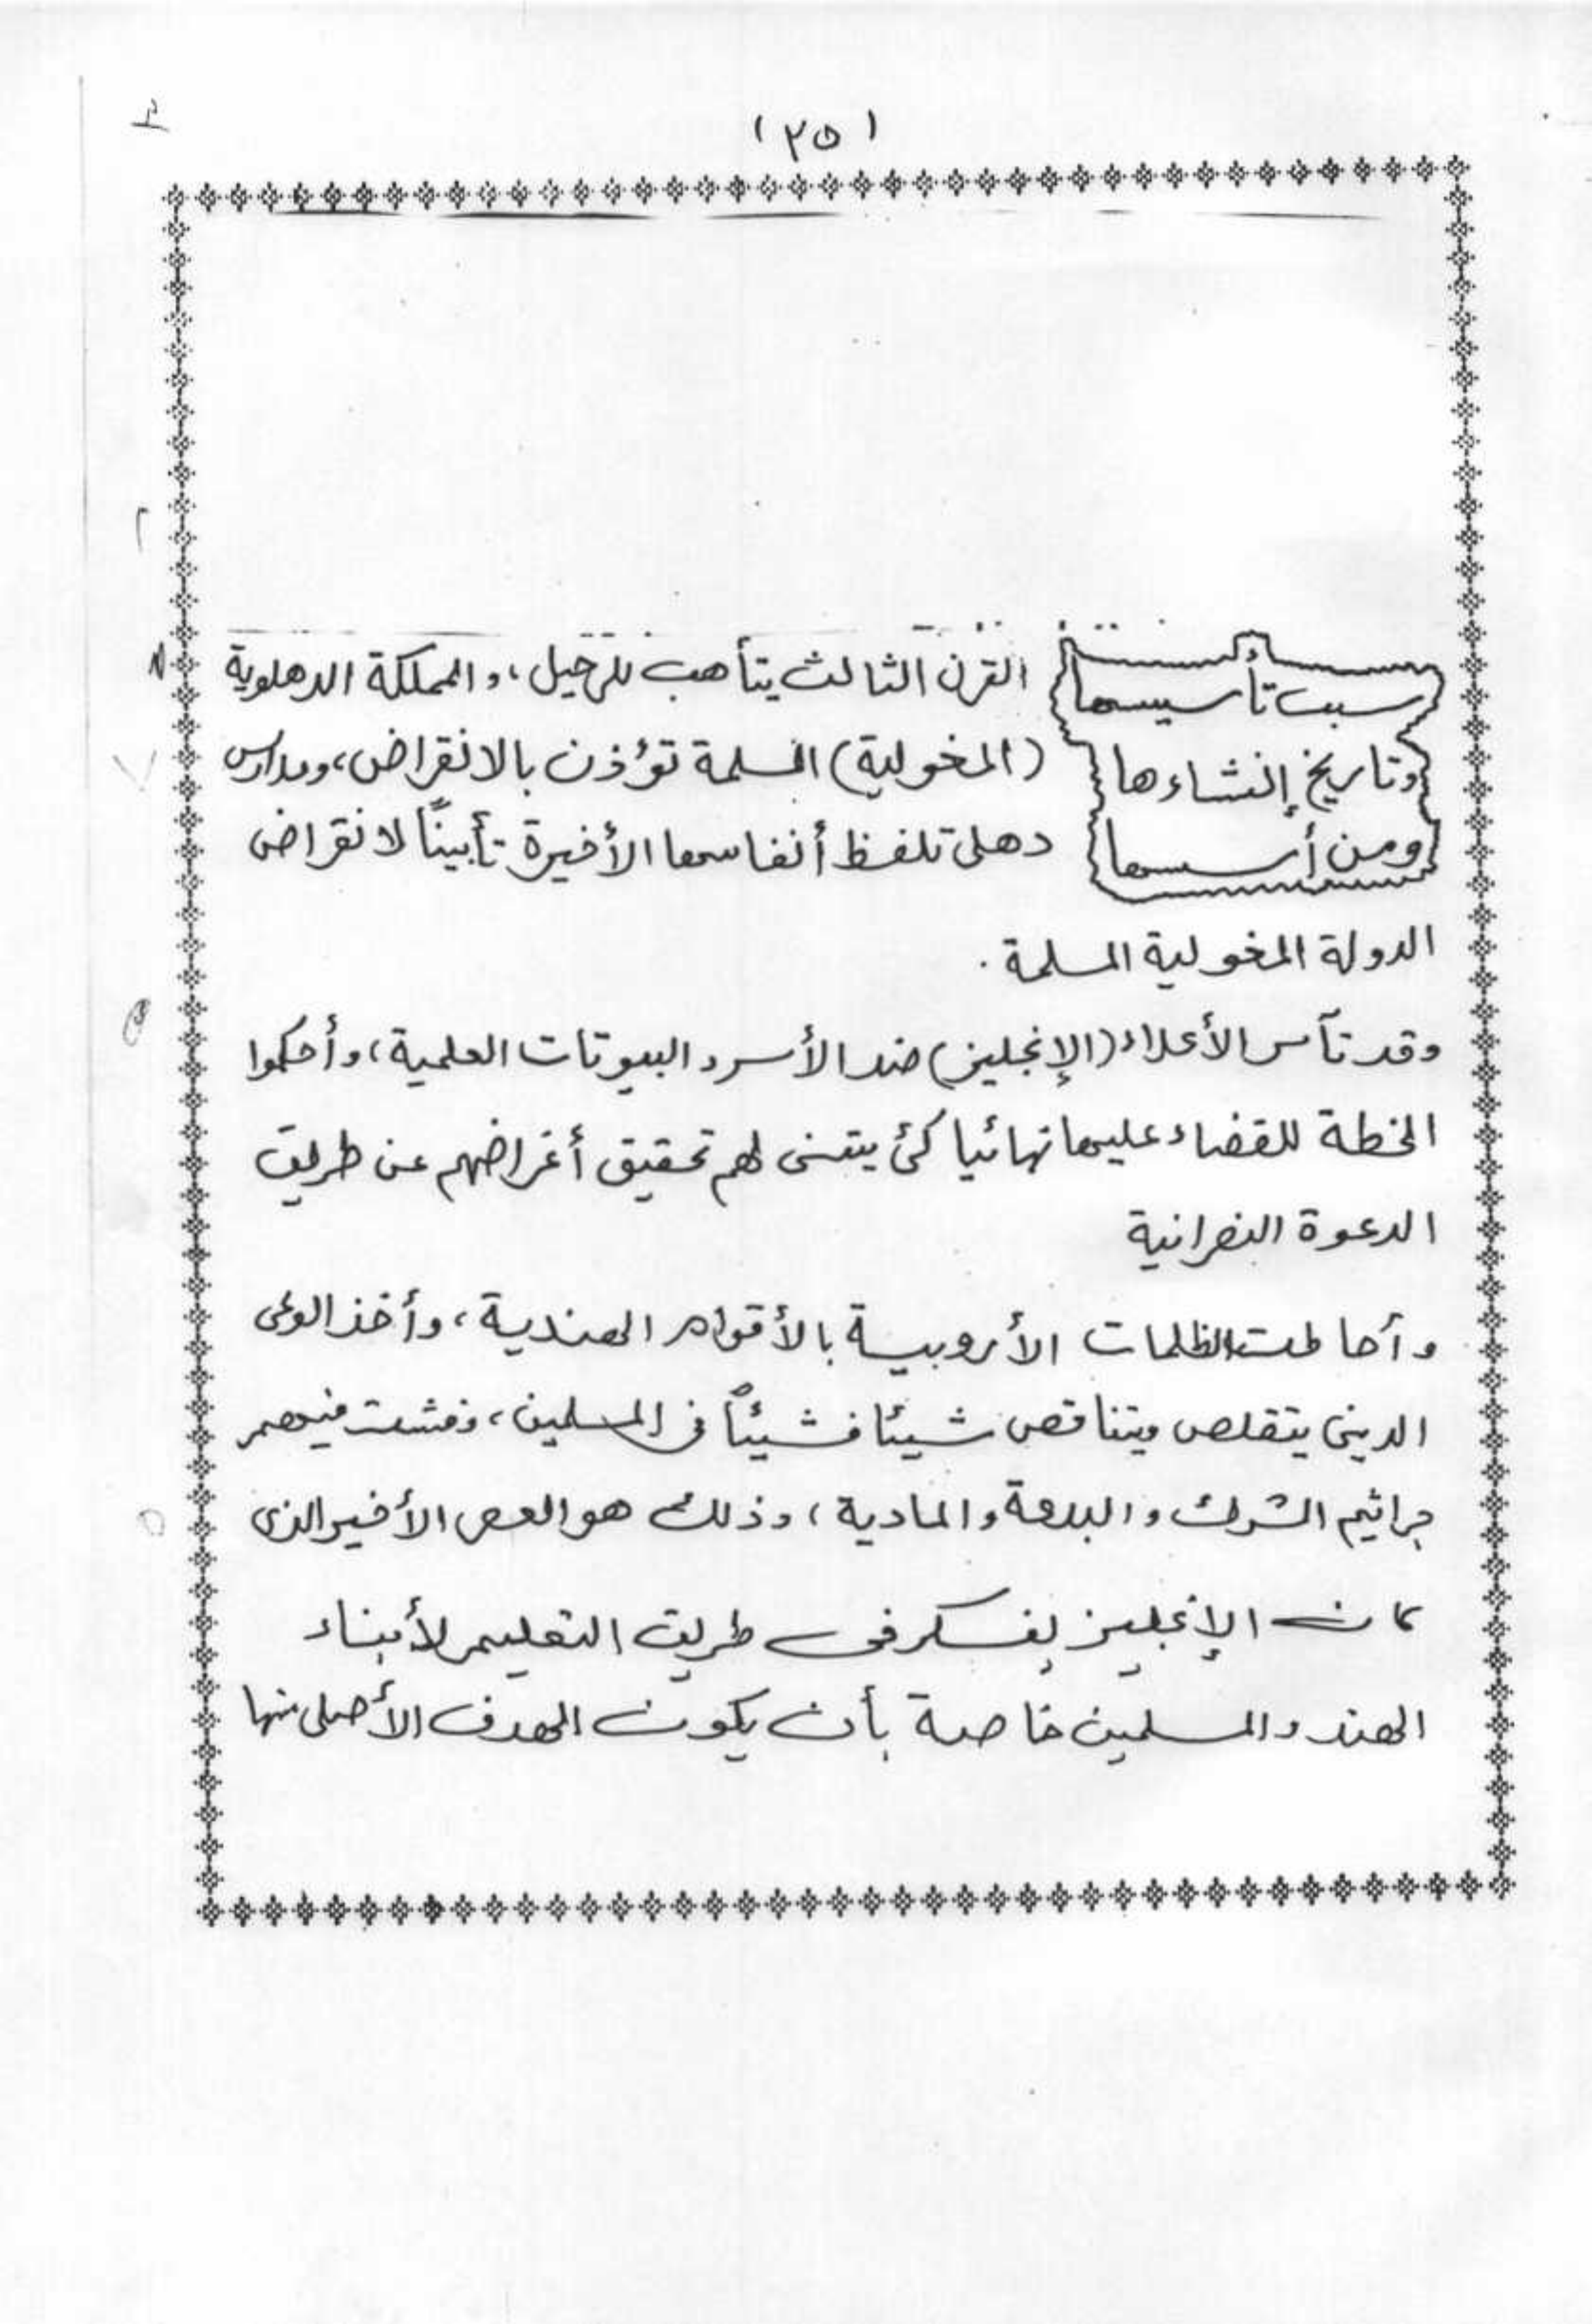 (٢٥)
سبب تأسيسها
وتاريخ إنشاءها
ومن أسسها
القرن الثالث يتأهب للرحيل، والمملكة الدهلوية
(المغولية) المسلمة تؤذن بالانقراض، ومدارس
دهلى تلفظ أنفاسها الأخيرة تأبينًا لانقراض
الدولة المغولية المسلمة .
وقد تآمر الأعداء (الإنجليز) ضد الأسر والبيوتات العلمية، وأحكموا
الخطة للقضاء عليها نهائيا كئ يتسنى لهم تحقيق أغراضهم عن طريق
الدعوة النصرانية
وأحاطت الظلمات الأروبية بالأقوام الهندية، وأخذ الوعى
الدينى يتقلص ويتناقص شيئا فشيئاً فى المسلمين، وفشت فيهم
جراثيم الشرك والبدعة والمادية، وذلك هو الأخير الذى
كان الإنجليز يفكر فى طريق التعليم لأبناء
الهند والمسلمين خاصة بأن يكون الهدف الأصلى منها